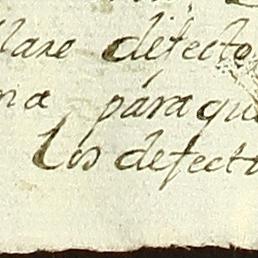 llare defecto
ria paraqu
Los defect